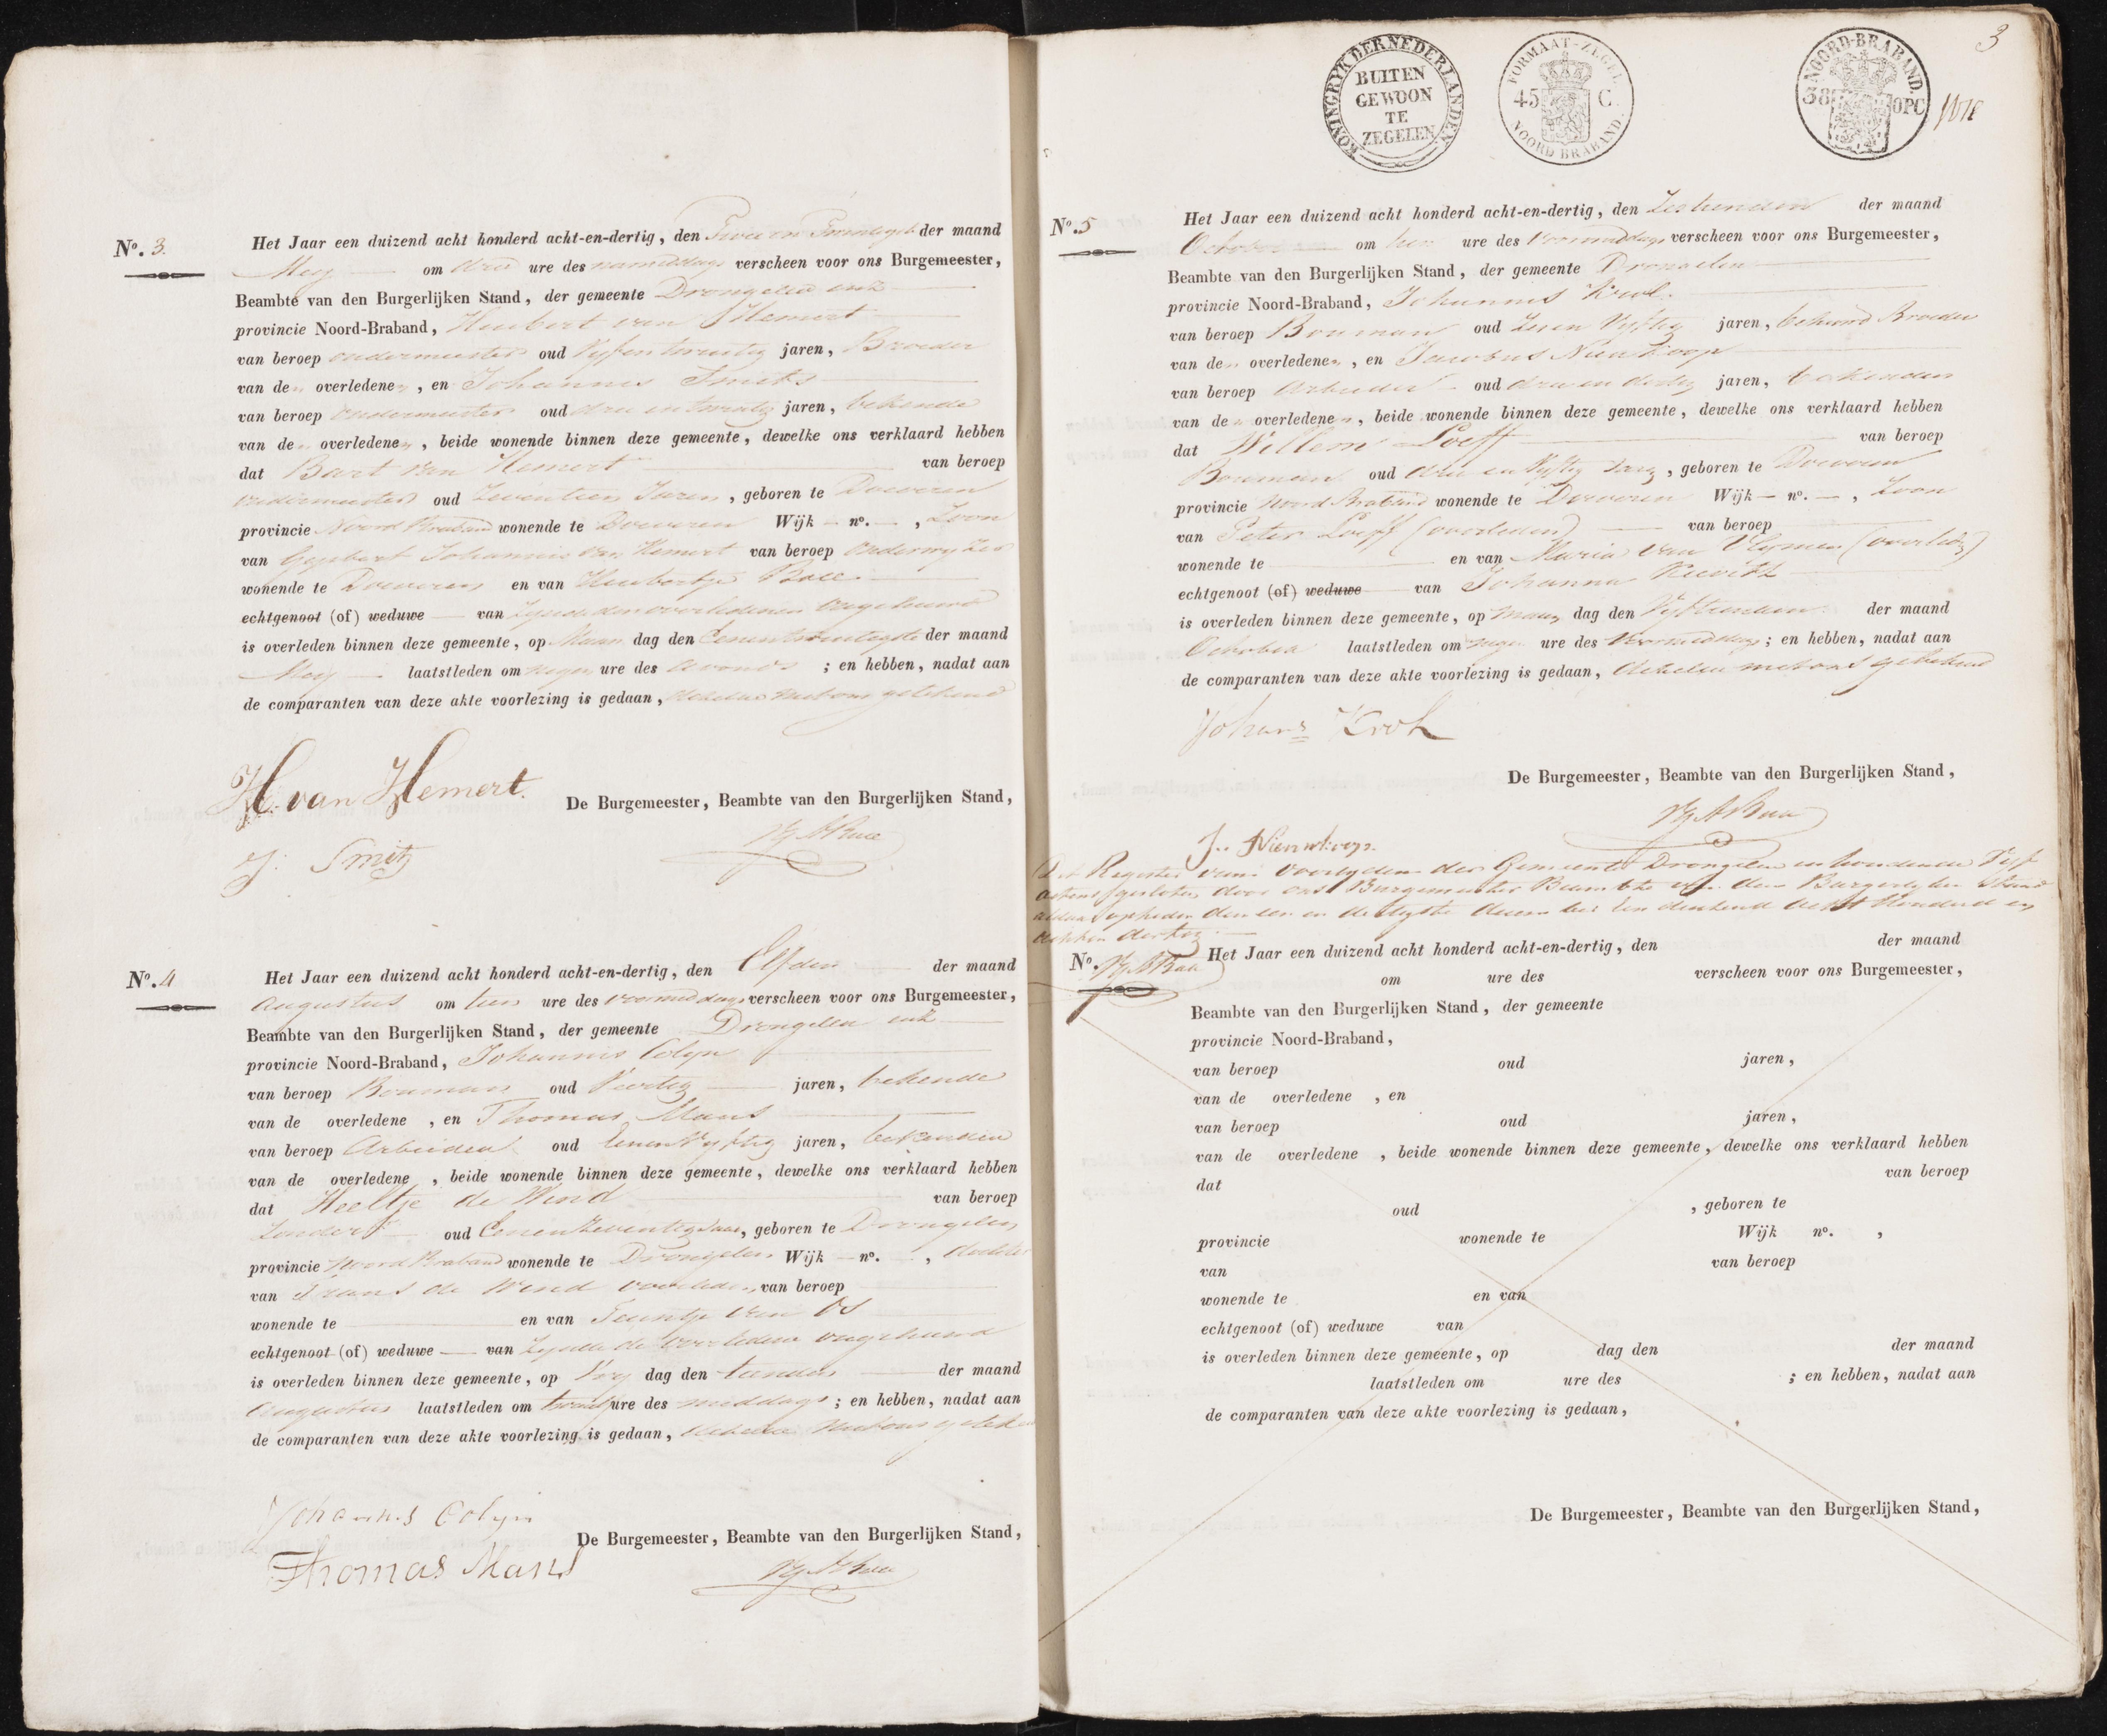 No. 3.
Het Jaar een duizend acht honderd acht-en-dertig, den Twee en Twintigste der maand
Mey om drie ure des namiddags verscheen voor ons Burgemeester,
Beambte van den Burgerlijken Stand, der gemeente Drongelen enz
provincie Noord-Braband, Huibert van Hemert
van beroep ondermeester oud Vyfentwintig jaren, Broeder
van den overledenen, en Johannis Smits
van beroep ondermeester oud drie en twintig jaren, bekende
van den overledenen, beide wonende binnen deze gemeente, dewelke ons verklaard hebben
dat Bart van Hemert van beroep
ondermeester oud Zeventien Jaren, geboren te Doeveren
provincie Noord Braband wonende te Doeveren Wijk — no. —, Zoon
van Gysbert Johannis van Hemert van beroep onderwyzer
wonende te Doeveren en van Huibertje
echtgenoot (of) weduwe — van Zynde den overledenen ongehuwd
is overleden binnen deze gemeente, op Maan dag den Eenentwintigste der maand
Mey laatstleden om negen ure des avonds ; en hebben, nadat aan
de comparanten van deze akte voorlezing is gedaan, dezelve met ons getekend
H. van Hemert.
De Burgemeester, Beambte van den Burgerlijken Stand,
J. Smitz
No. 4
Het Jaar een duizend acht honderd acht-en-dertig, den Elfden der maand
Augustus om tien ure des voormiddags verscheen voor ons Burgemeester,
Beambte van den Burgerlijken Stand, der gemeente Drongelen enz
provincie Noord-Braband, Johannis Colyn
van beroep Bouman oud Veertig jaren, bekende
van de overledene, en Thomas Mans
van beroep Arbeider oud Eenenvyftig jaren, bekenden
van de overledene, beide wonende binnen deze gemeente, dewelke ons verklaard hebben
dat Heeltje de Wend van beroep
Zonder oud Eenenzeventig Jaar, geboren te Drongelen
provincie Noord Braband wonende te Drongelen Wijk — no. —, dochter
van Frans de Wend overleden, van beroep
wonende te en van Teuntje van Os
echtgenoot (of) weduwe — van Zynde de overledene ongehuwd
is overleden binnen deze gemeente, op Vry dag den tienden der maand
Augustus laatstleden om twaalf ure des middags ; en hebben, nadat aan
de comparanten van deze akte voorlezing is gedaan, dezelve met ons getekend
Johannis Colyn
De Burgemeester, Beambte van den Burgerlijken Stand,
Thomas Mans
3
KONINGRYK DER NEDERLANDEN.
BUITEN
GEWOON
TE
ZEGELEN
FORMAAT-ZEGEL
45 C.
NOORD BRABAND.
NOORD-BRABAND.
38 OPC
No. 5
Het Jaar een duizend acht honderd acht-en-dertig, den Zestienden der maand
October om tien ure des voormiddags verscheen voor ons Burgemeester,
Beambte van den Burgerlijken Stand, der gemeente Drongelen
provincie Noord-Braband, Johannis Krol.
van beroep Bouman oud Zeven Vyftig jaren, behuwd Broeder
van den overledenen, en Jacobus Nieuwkoop
van beroep Arbeider oud drie en dertig jaren, bekenden
van den overledenen, beide wonende binnen deze gemeente, dewelke ons verklaard hebben
dat Willem Loeff van beroep
Bouman oud drie en Vyftig Jaar, geboren te Doeveren
provincie Noord Braband wonende te Doeveren Wijk — no. —, Zoon
van Peter Loeff (overleden) van beroep
wonende te en van Maria van Vlymen (overleden)
echtgenoot (of) weduwe van Johanna
is overleden binnen deze gemeente, op maan dag den Vyftienden der maand
October laatstleden om negen ure des Voormiddags ; en hebben, nadat aan
de comparanten van deze akte voorlezing is gedaan, dezelve met ons getekend
Johans Krol
De Burgemeester, Beambte van den Burgerlijken Stand,
J. Nieuwkoop.
Dit Register van overlyden der Gemeente Drongelen inhoudende Vyf
actens gesloten door ons Burgemeester Beambte van den Burgerlyken Stand
aldaar op heden den een en dertigste december een duizend acht honderd en
acht en dertig.
No.
Het Jaar een duizend acht honderd acht-en-dertig, den der maand
om ure des verscheen voor ons Burgemeester,
Beambte van den Burgerlijken Stand, der gemeente
provincie Noord-Braband,
van beroep oud jaren,
van de overledene , en
van beroep oud jaren,
van de overledene , beide wonende binnen deze gemeente, dewelke ons verklaard hebben
dat van beroep
oud , geboren te
provincie wonende te Wijk no. ,
van van beroep
wonende te en van
echtgenoot (of) weduwe van
is overleden binnen deze gemeente, op dag den der maand
laatstleden om ure des ; en hebben, nadat aan
de comparanten van deze akte voorlezing is gedaan,
De Burgemeester, Beambte van den Burgerlijken Stand,